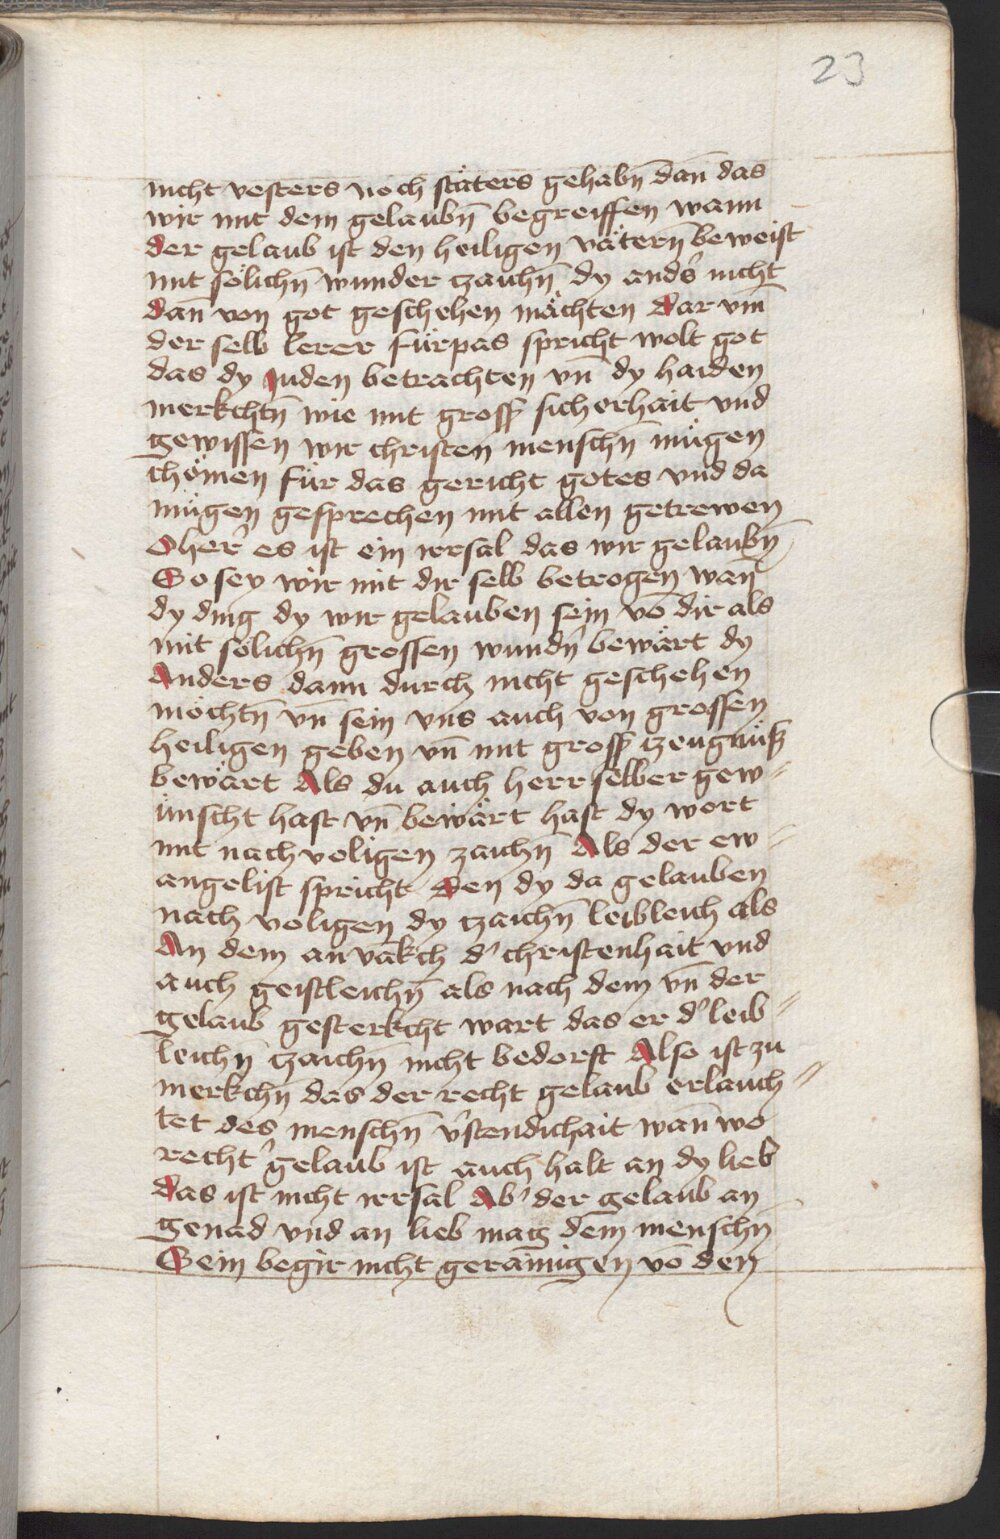 23
nicht vesters noch stäters gehabn̄ dan̄ das
wir mit dem gelaubn̄ begreiffen wann
der gelaub ist den heiligen vätern̄ beweist
mit sölichn̄ wunder tzaichn̄ dy anders nicht
dan̄ von got geschehen möchten dar vm̄
der selb lerer fürpas spricht wolt got
das dy Juden betrachten vn̄ dy haiden
merkchtn̄ wie mit gross sicherhait vnd
gewissen wir christen menschn̄ mügen
chömen für das gericht gotes vnd da
mügen gesprechen mit allen getrewen
O her' es ist ein irrsal das wir gelaubn̄
So sey wir mit dir selb betrogen wan̄
dy ding dy wir gelauben sein vō dir als
mit sölichn̄ grossen wundn̄ bewärt dy
Anders dann durch nicht geschehen
möchtn̄ vn̄ sein vns auch von grossen
heiligen geben vn̄ mit gross tzeugnüß
bewärt Als du auch herr selber gew=
ünscht hast vn̄ bewärt hast dy wort
mit nachvoligen zaichn̄ Als der ew=
angelist spricht Den dy da gelauben
nach voligen dy tzaichn̄ leibleich als
An dem anvākch d' christenhait vnd
auch geistleichn̄ als nach dem vn̄ der
gelaub gesterkcht wart das er d' leib=
leichn̄ tzaichn̄ nicht bedorft Also ist zu
merkchn̄ das der recht gelaub erlauch=
tet des menschn̄ v'stendichait wan̄ wo
recht' gelaub ist auch halt an dy lieb
das ist nicht irrsal Ab' der gelaub an
genad vnd an lieb mag dem menschn̄
Sein begir nicht gerainigen vō den